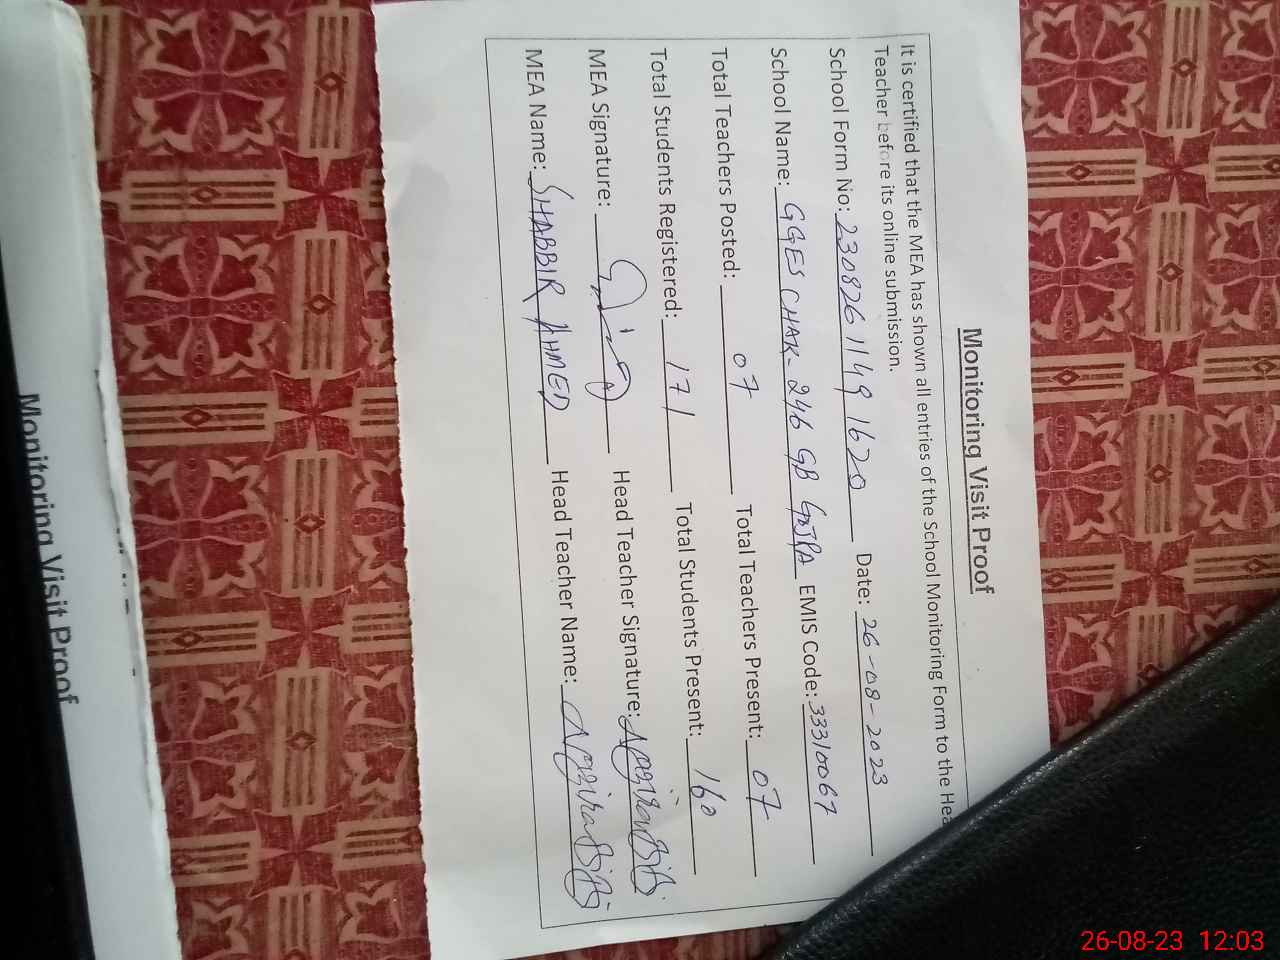 Monitoring Visit Proof
It is certified that the MEA has shown all entries of the School Monitoring Form to the Hea
Teacher before its online submission.
School Form No: 230826 1149 1620 Date: 26-08-2023
School Name: GGES CHAK-246 GB GOJRA EMIS Code: 33310067
Total Teachers Posted: 07 Total Teachers Present: 07
Total Students Registered: 171 Total Students Present: 160
MEA Signature: Head Teacher Signature:
MEA Name: SHABBIR AHMED Head Teacher Name:
Monitoring Visit Proof
26-08-23 12:03